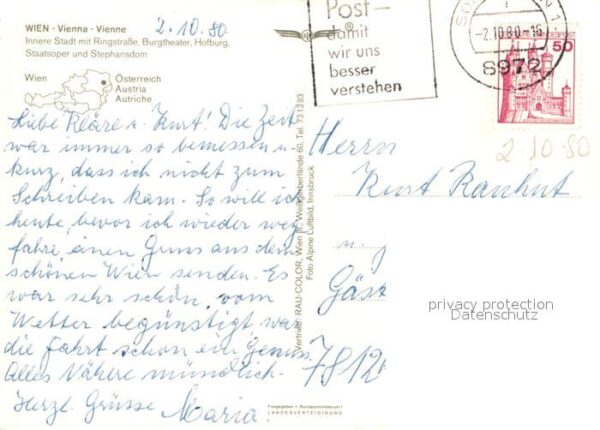 WIEN - Vienna - Vienne
2.10.80
Innere Stadt mit Ringstraße, Burgtheater, Hofburg,
Staatsoper und Stephansdom
Wien
Österreich
Austria
Autriche
Liebe Kläre u. Kurt! Die Zeit
war immer so bemessen u.
kurz, dass ich nicht zum
Schreiben kam. So will ich
heute, bevor ich wieder weg
fahre, einen Gruss aus dem
schönen Wien senden. Es
war sehr schön, vom
Wetter begünstigt, war
die Fahrt schon ein Genuss.
Alles Nähere mündlich.
Herzl. Grüsse Maria.
Vertrieb: RAU-COLOR, Wien III, Weißgerberlände 60, Tel. 731383
Foto Alpine Luftbild, Innsbruck
Freigegeben v. Bundesministerium f.
LANDESVERTEIDIGUNG
Post -
damit
wir uns
besser
verstehen
-2.10.80-16
8972
50
2.10.80
Herrn
Kurt Ranhut
u.
Gäst
7812
privacy protection
Datenschutz